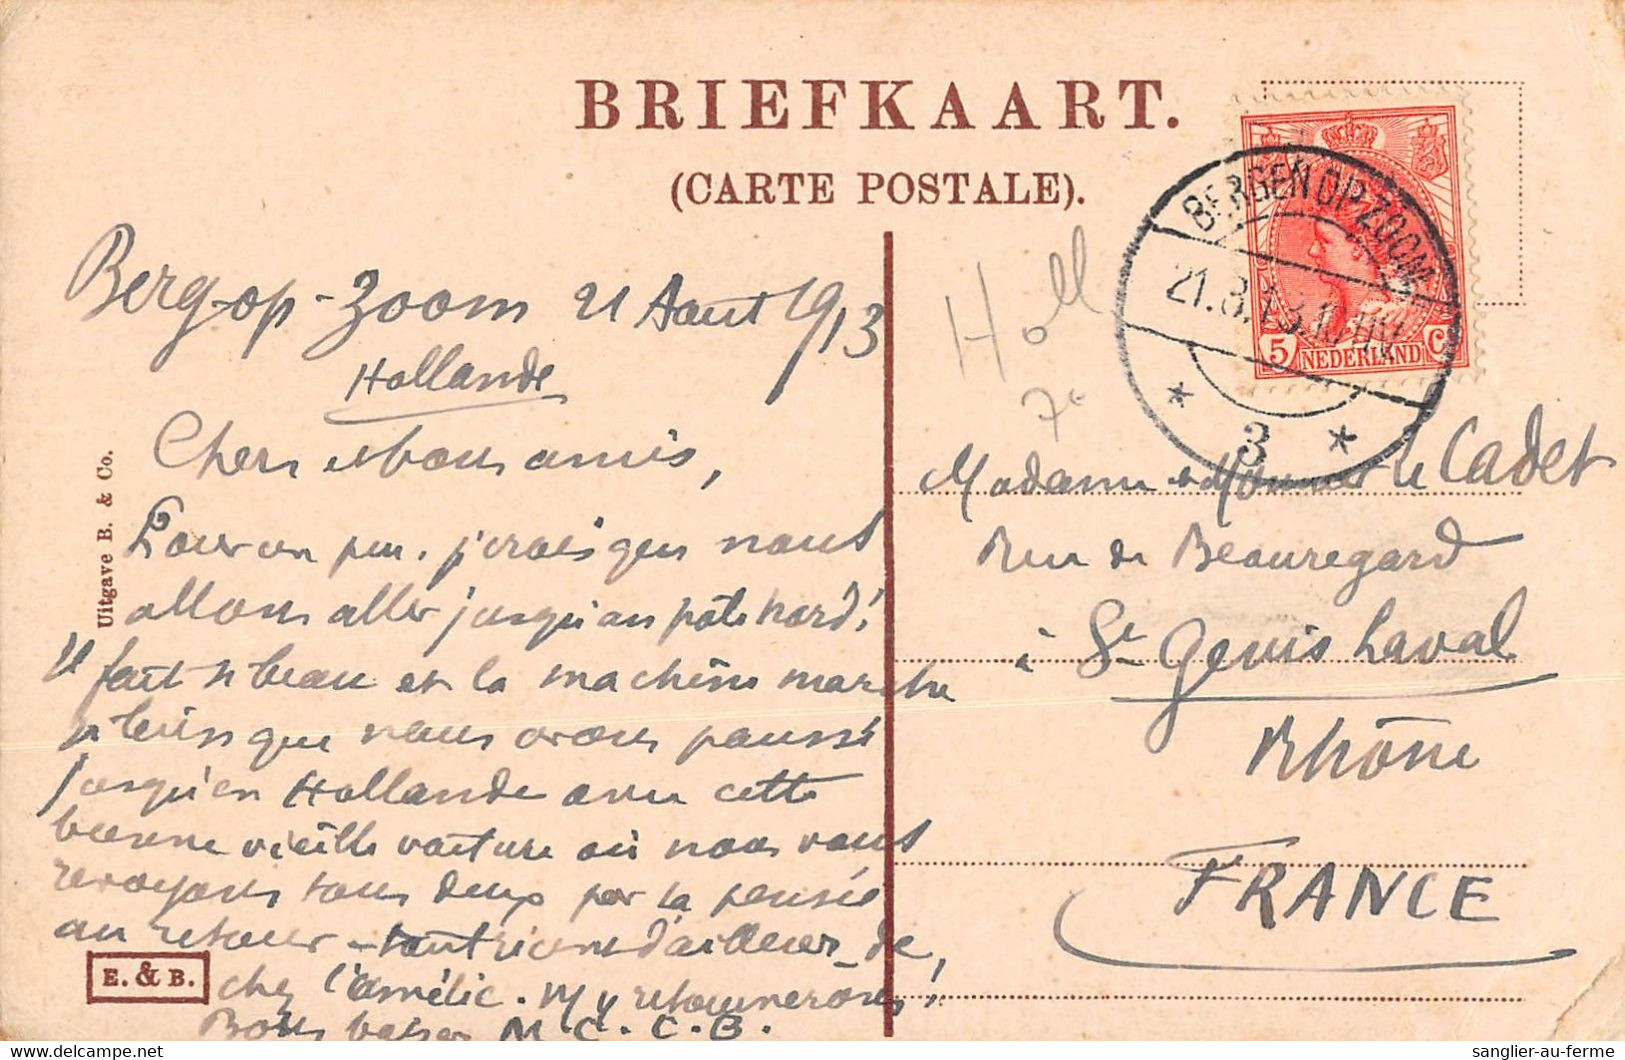 BRIEFKAART.
(CARTE POSTALE).
BERGEN OP ZOOM
21.8.13.
3
5 NEDERLAND C
Holl
7e
Berg-op-Zoom 21 Aout 1913
Hollande
Chers et bons amis,
Pour un peu, j'crois que nous
allons aller jusqu'au pôle nord!
Il fait si beau et la machine marche
si bien que nous avons poussé
jusqu'en Hollande avec cette
bonne vieille voiture où nous vous
revoyons tous deux par la pensée
au retour d'ailleurs de
chez l'Amélie. Ns y retournerons!
Bons baiser M. C. C. B.
Madame et Monsieur Le Cadet
Rue de Beauregard
à St Genis Laval
Rhône
FRANCE
Uitgave B. & Co.
E. & B.
Delcampe.net
sanglier-au-ferme